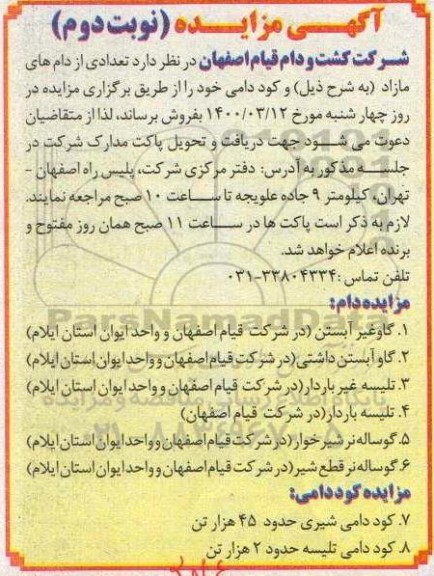 آگهی مزایده (نوبت دوم)
شرکت کشت و دام قیام اصفهان در نظر دارد تعدادی از دام های
مازاد (به شرح ذیل) و کود دامی خود را از طریق برگزاری مزایده در
روز چهار شنبه مورخ ۱۴۰۰/۰۳/۱۲ بفروش برساند، لذا از متقاضیان
دعوت می شود جهت دریافت و تحویل پاکت مدارک شرکت در
جلسه مذکور به آدرس: دفتر مرکزی شرکت، پلیس راه اصفهان -
تهران، کیلومتر ۹ جاده علویجه تا ساعت ۱۰ صبح مراجعه نمایند.
لازم به ذکر است پاکت ها در ساعت ۱۱ صبح همان روز مفتوح و
برنده اعلام خواهد شد.
تلفن تماس: ۳۳۸۰۴۳۳۴-۰۳۱
مزایده دام:
۱. گاو غیر آبستن (در شرکت قیام اصفهان و واحد ایوان استان ایلام)
۲. گاو آبستن داشتی (در شرکت قیام اصفهان و واحد ایوان استان ایلام)
۳. تلیسه غیر باردار (در شرکت قیام اصفهان و واحد ایوان استان ایلام)
۴. تلیسه باردار (در شرکت قیام اصفهان)
۵. گوساله نر شیر خوار (در شرکت قیام اصفهان و واحد ایوان استان ایلام)
۶. گوساله نر قطع شیر (در شرکت قیام اصفهان و واحد ایوان استان ایلام)
مزایده کود دامی:
۷. کود دامی شیری حدود ۴۵ هزار تن
۸. کود دامی تلیسه حدود ۲ هزار تن
ParsNamadData